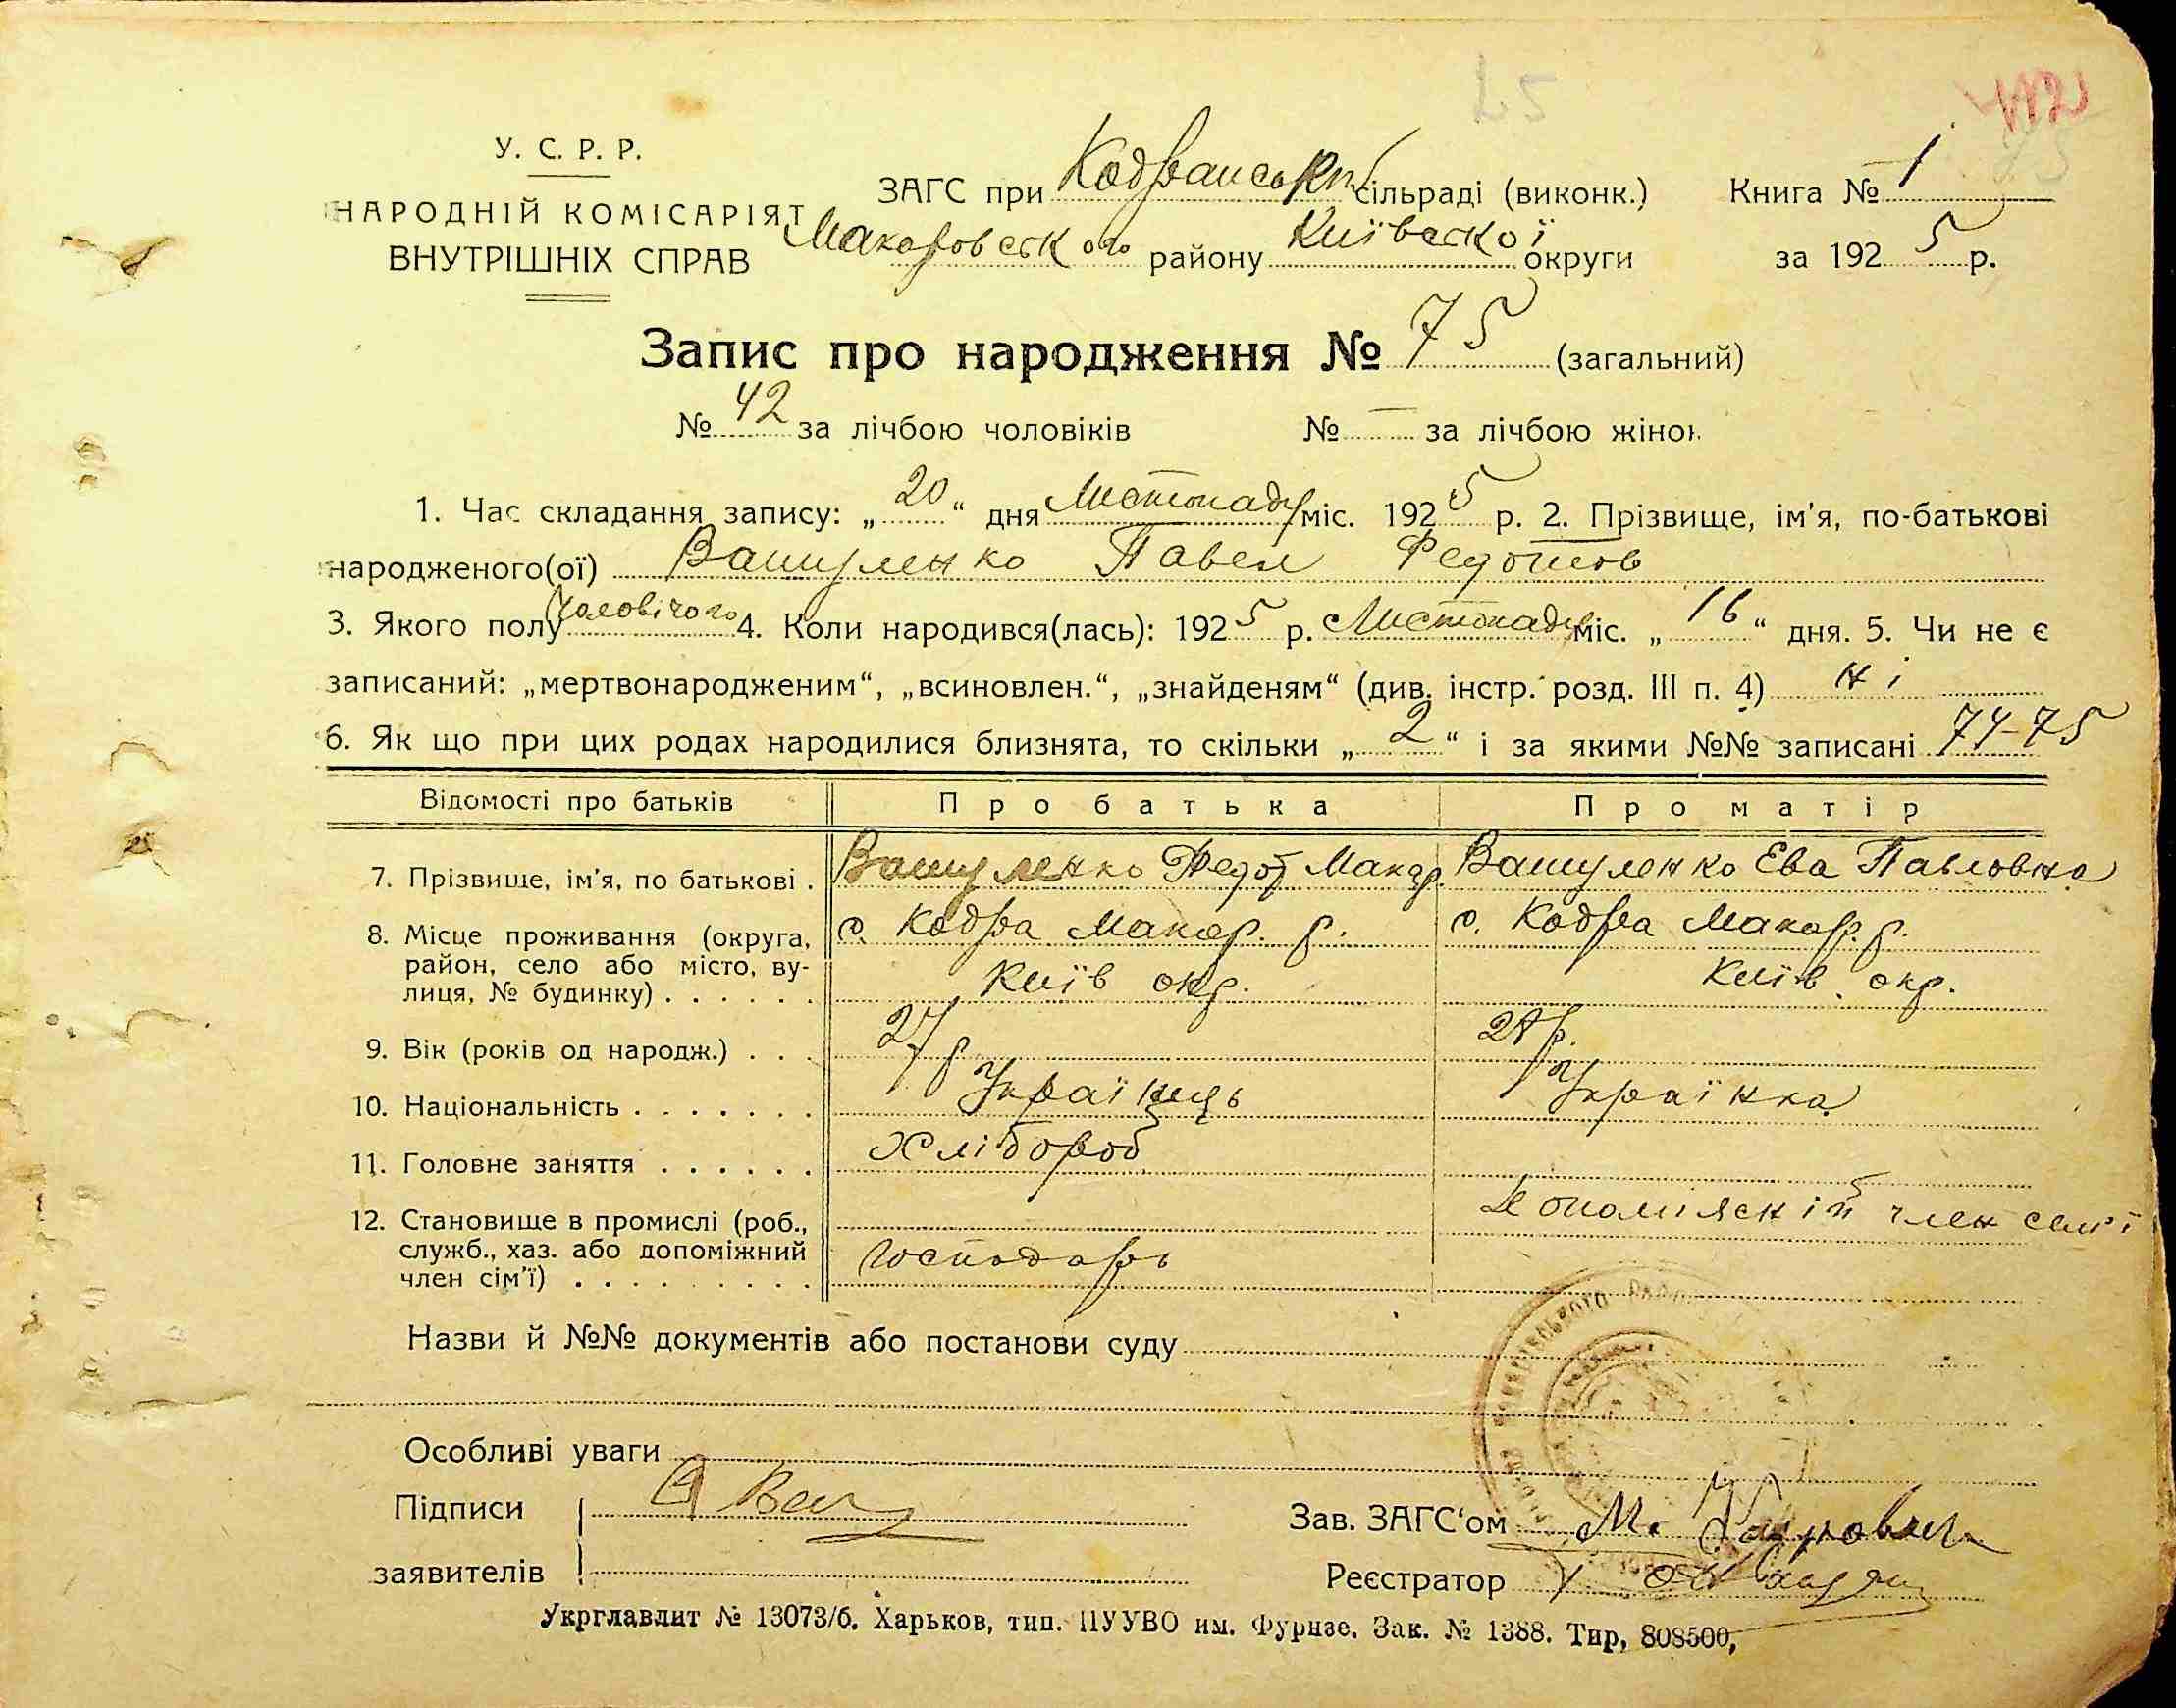 25
У. С. Р. Р.
НАРОДНІЙ КОМІСАРІЯТ
ВНУТРІШНІХ СПРАВ
ЗАГС при Кодрянській сільраді (виконк.) Книга № 1
Макаровського району Київської округи за 1925 р.
Запис про народження № 75 (загальний)
№ 42 за лічбою чоловіків № — за лічбою жінок
1. Час складання запису: „20“ дня Листопаду міс. 1925 р. 2. Прізвище, ім'я, по-батькові
народженого(ої) Вашуленко Павел Федотов
3. Якого полу Чоловічого 4. Коли народився(лась): 1925 р. Листопаду міс. „16“ дня. 5. Чи не є
записаний: „мертвонародженим“, „всиновлен.“, „знайденям“ (див. інстр. розд. III п. 4) ні
6. Як що при цих родах народилися близнята, то скільки „2“ і за якими №№ записані 74-75
Відомості про батьків Про батька Про матір
7. Прізвище, ім'я, по батькові . Вашуленко Федот Макар. Вашуленко Ева Павловна
8. Місце проживання (округа, с. Кодра Макар. р. с. Кодра Макар. р.
район, село або місто, ву-
лиця, № будинку) . . . . . . Київ окр. Київ. окр.
9. Вік (років од народж.) . . . 27 р
10. Національність . . . . . . . Українць Українка
11. Головне заняття . . . . . . Хлібороб
12. Становище в промислі (роб., Допоміжній член семї
служб., хаз. або допоміжний Господарь
член сім'ї) . . . . . . . . .
Назви й №№ документів або постанови суду
Особливі уваги
Підписи
заявителів
Зав. ЗАГС'ом М.
Реєстратор
Укрглавлит № 13073/б. Харьков, тип. ПУУВО им. Фурнзе. Зак. № 1388. Тир, 808500,